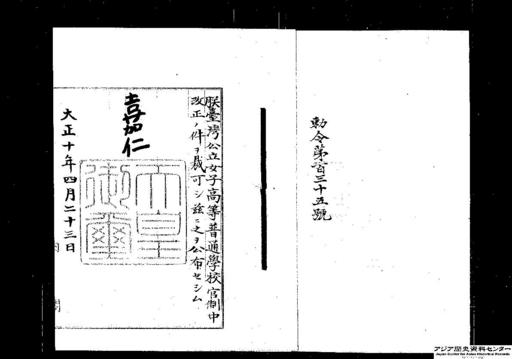 勅令第百三十五號
朕臺灣公立女子高等普通學校官制中
改正ノ件ヲ裁可シ茲ニ之ヲ公布セシム
嘉仁
天皇御璽
大正十年四月二十三日
内閣
アジア歴史資料センター
Japan Center for Asian Historical Records